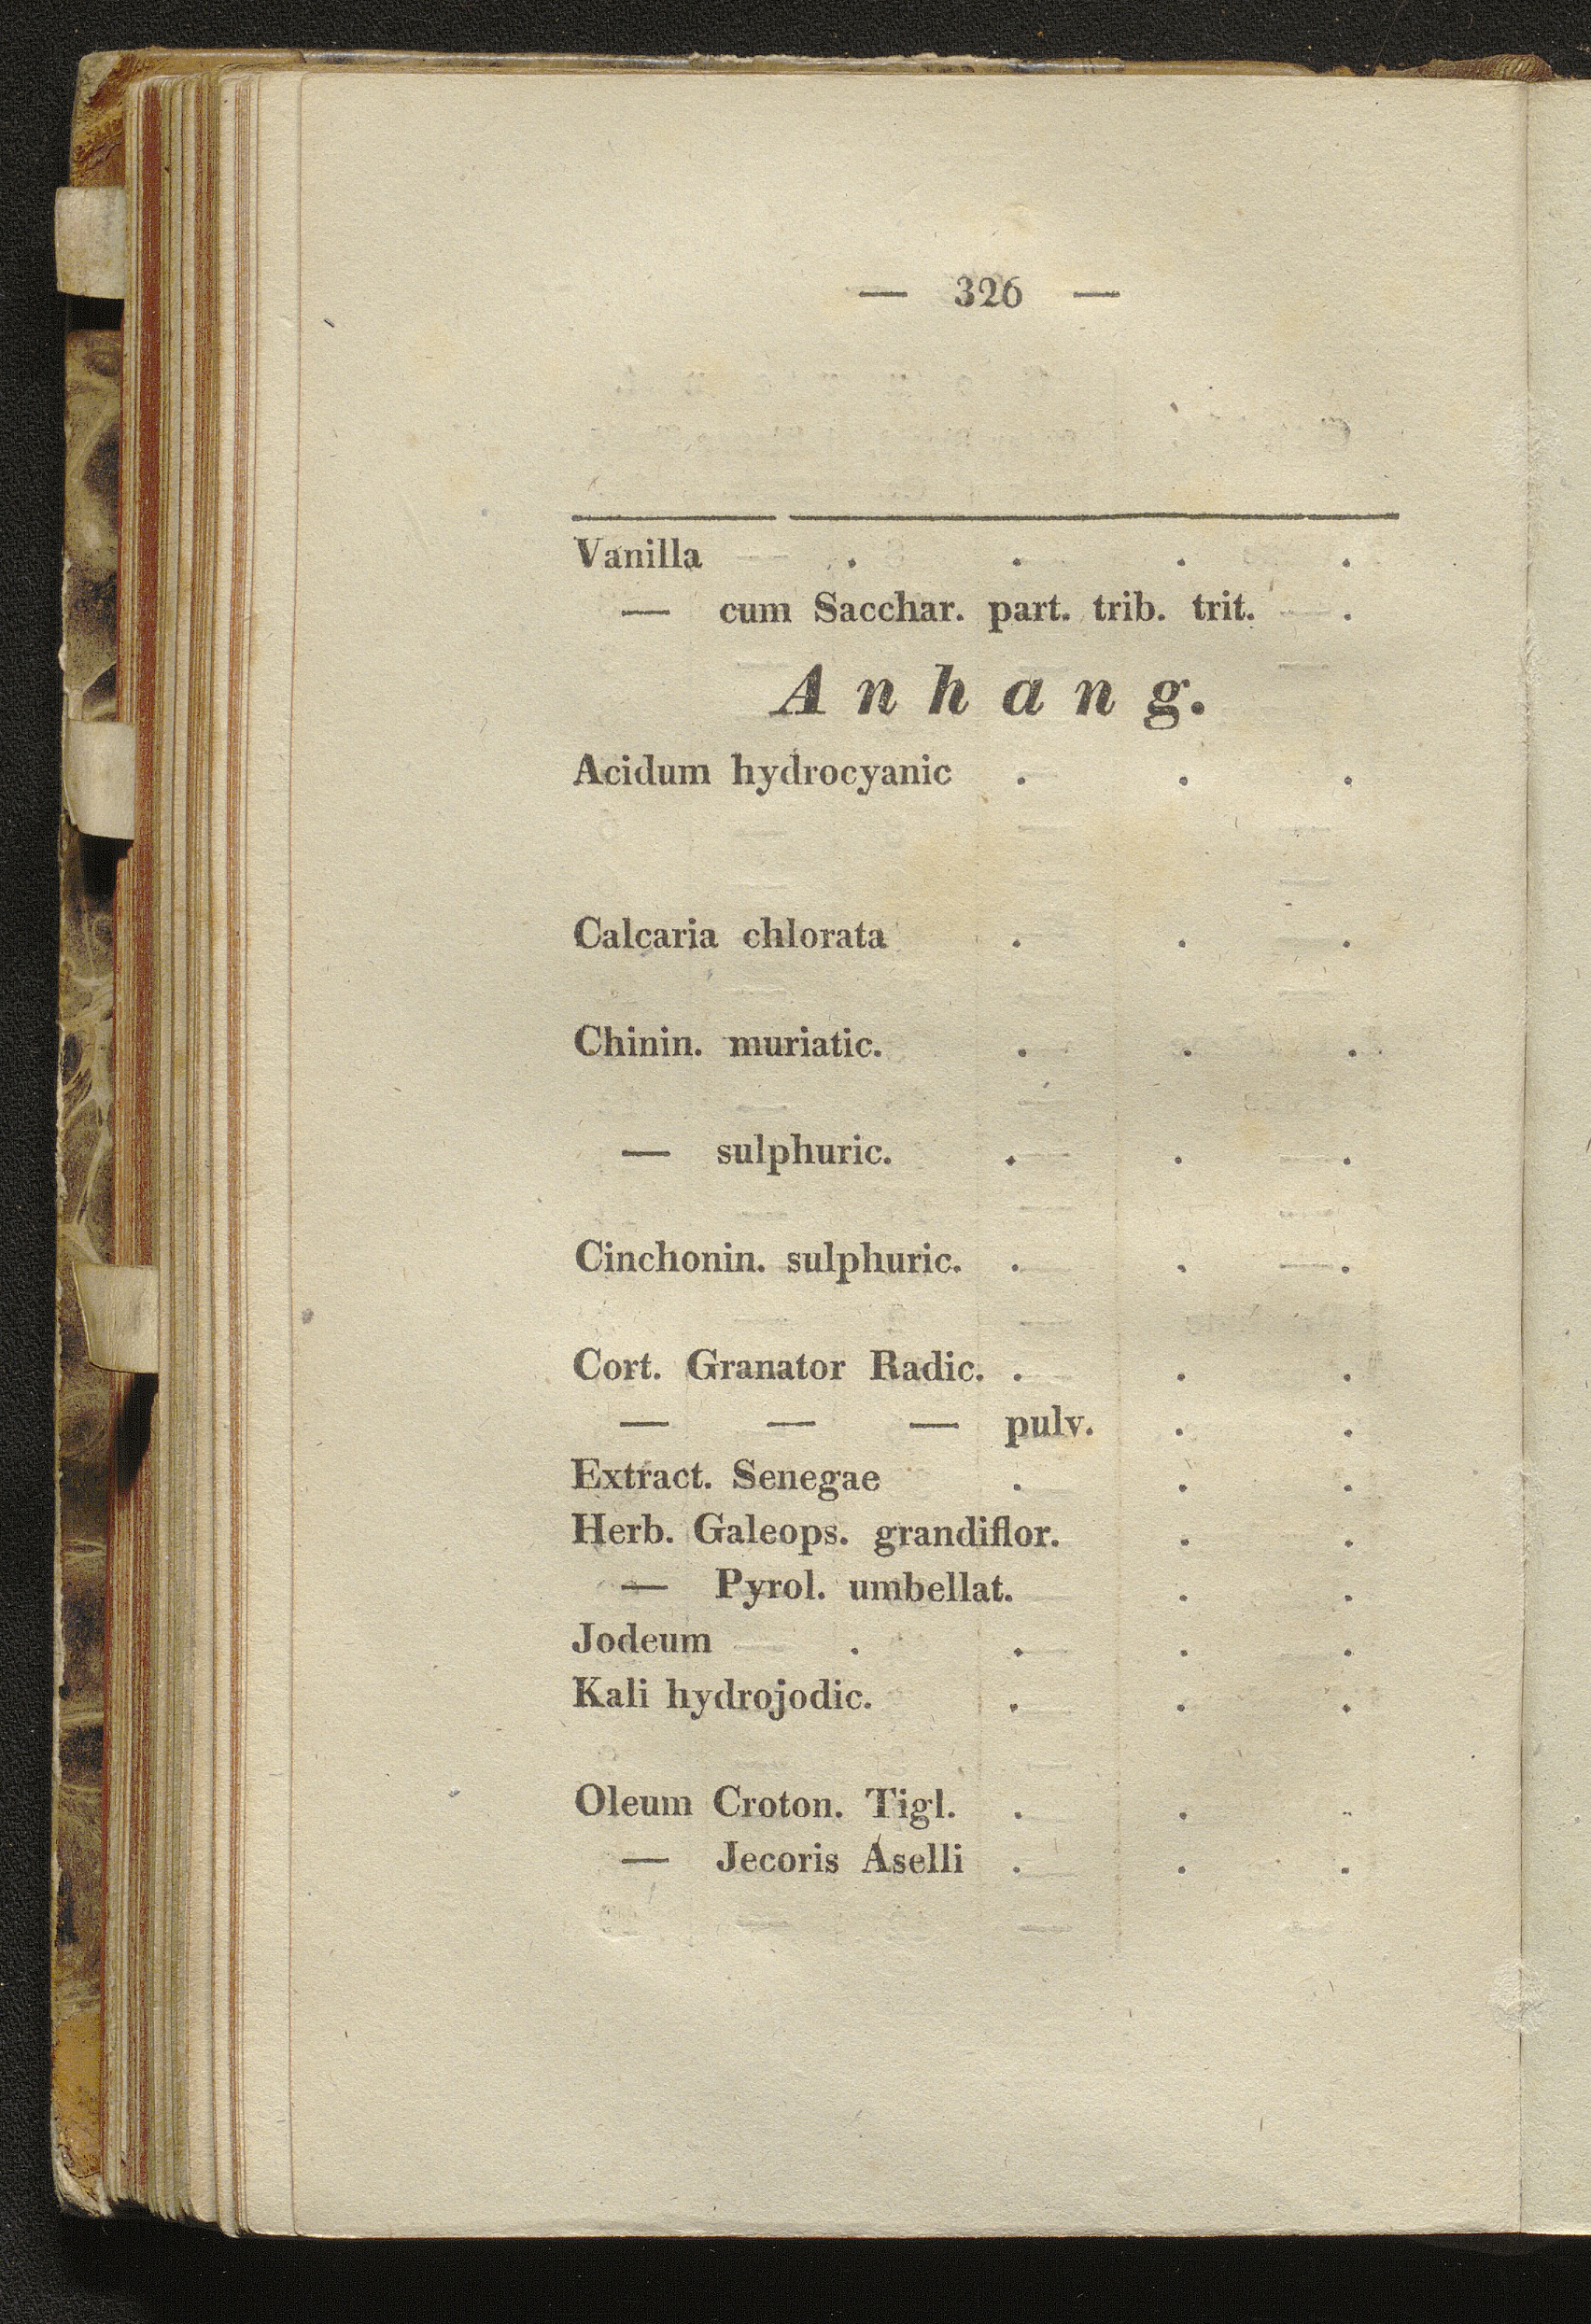 — 326 —
Vanilla . . . .
— cum Sacchar. part. trib. trit. .
Anhang.
Acidum hydrocyanic . . .
Calcaria chlorata . . .
Chinin. muriatic. . . .
— sulphuric. . . .
Cinchonin. sulphuric. . . .
Cort. Granator Radic. . . .
— — — pulv. . .
Extract. Senegae . . .
Herb. Galeops. grandiflor. . .
— Pyrol. umbellat. . .
Jodeum . . . .
Kali hydrojodic. . . .
Oleum Croton. Tigl. . . .
— Jecoris Aselli . . .